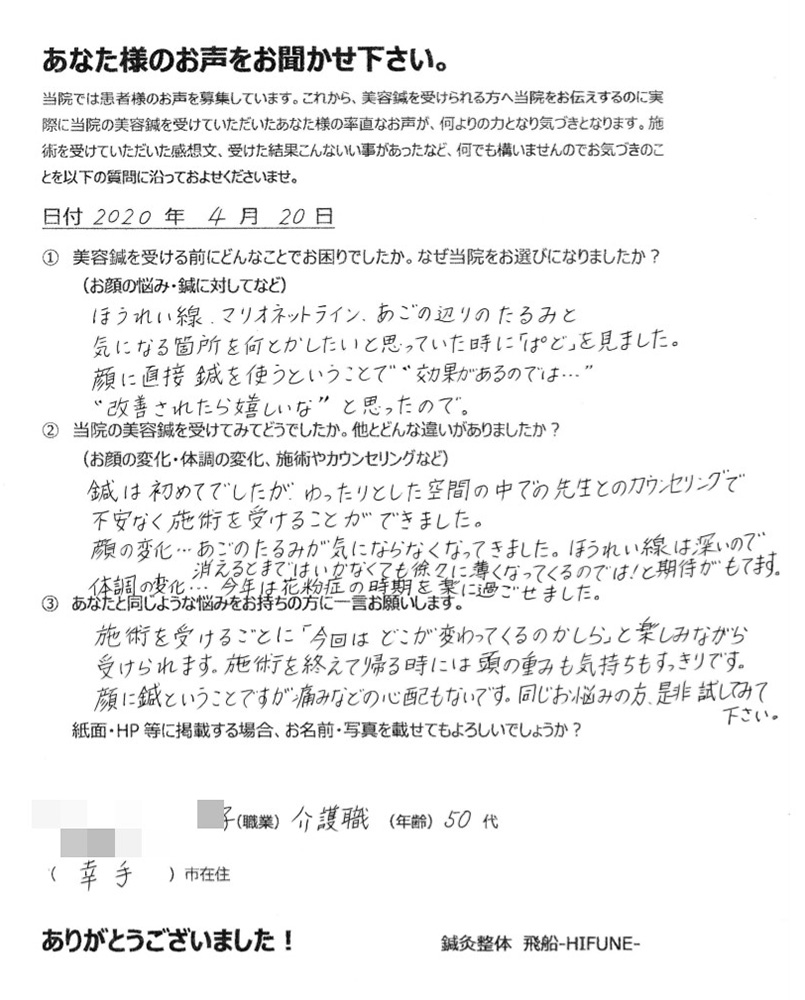 あなた様のお声をお聞かせ下さい。
当院では患者様のお声を募集しています。これから、美容鍼を受けられる方へ当院をお伝えするのに実
際に当院の美容鍼を受けていただいたあなた様の率直なお声が、何よりの力となり気づきとなります。施
術を受けていただいた感想文、受けた結果こんないい事があったなど、何でも構いませんのでお気づきのこ
とを以下の質問に沿っておよせくださいませ。
日付 2020 年 4 月 20 日
① 美容鍼を受ける前にどんなことでお困りでしたか。なぜ当院をお選びになりましたか？
（お顔の悩み・鍼に対してなど）
ほうれい線、マリオネットライン、あごの辺りのたるみと
気になる箇所を何とかしたいと思っていた時に「ぱど」を見ました。
顔に直接 鍼を使うということで “効果があるのでは…”
“改善されたら嬉しいな” と思ったので。
② 当院の美容鍼を受けてみてどうでしたか。他とどんな違いがありましたか？
（お顔の変化・体調の変化、施術やカウンセリングなど）
鍼は初めてでしたが、ゆったりとした空間の中での先生とのカウンセリングで
不安なく施術を受けることができました。
顔の変化…あごのたるみが気にならなくなってきました。ほうれい線は深いので
消えるとまではいかなくても徐々に薄くなってくるのでは！と期待がもてます。
体調の変化… 今年は花粉症の時期を楽に過ごせました。
③ あなたと同じような悩みをお持ちの方に一言お願いします。
施術を受けるごとに「今回は どこが変わってくるのかしら」と楽しみながら
受けられます。施術を終えて帰る時には頭の重みも気持ちもすっきりです。
顔に鍼ということですが痛みなどの心配もないです。同じお悩みの方、是非 試してみて
下さい。
紙面・HP 等に掲載する場合、お名前・写真を載せてもよろしいでしょうか？
子（職業） 介護職 （年齢） 50 代
（ 幸手 ）市在住
ありがとうございました！
鍼灸整体 飛船-HIFUNE-